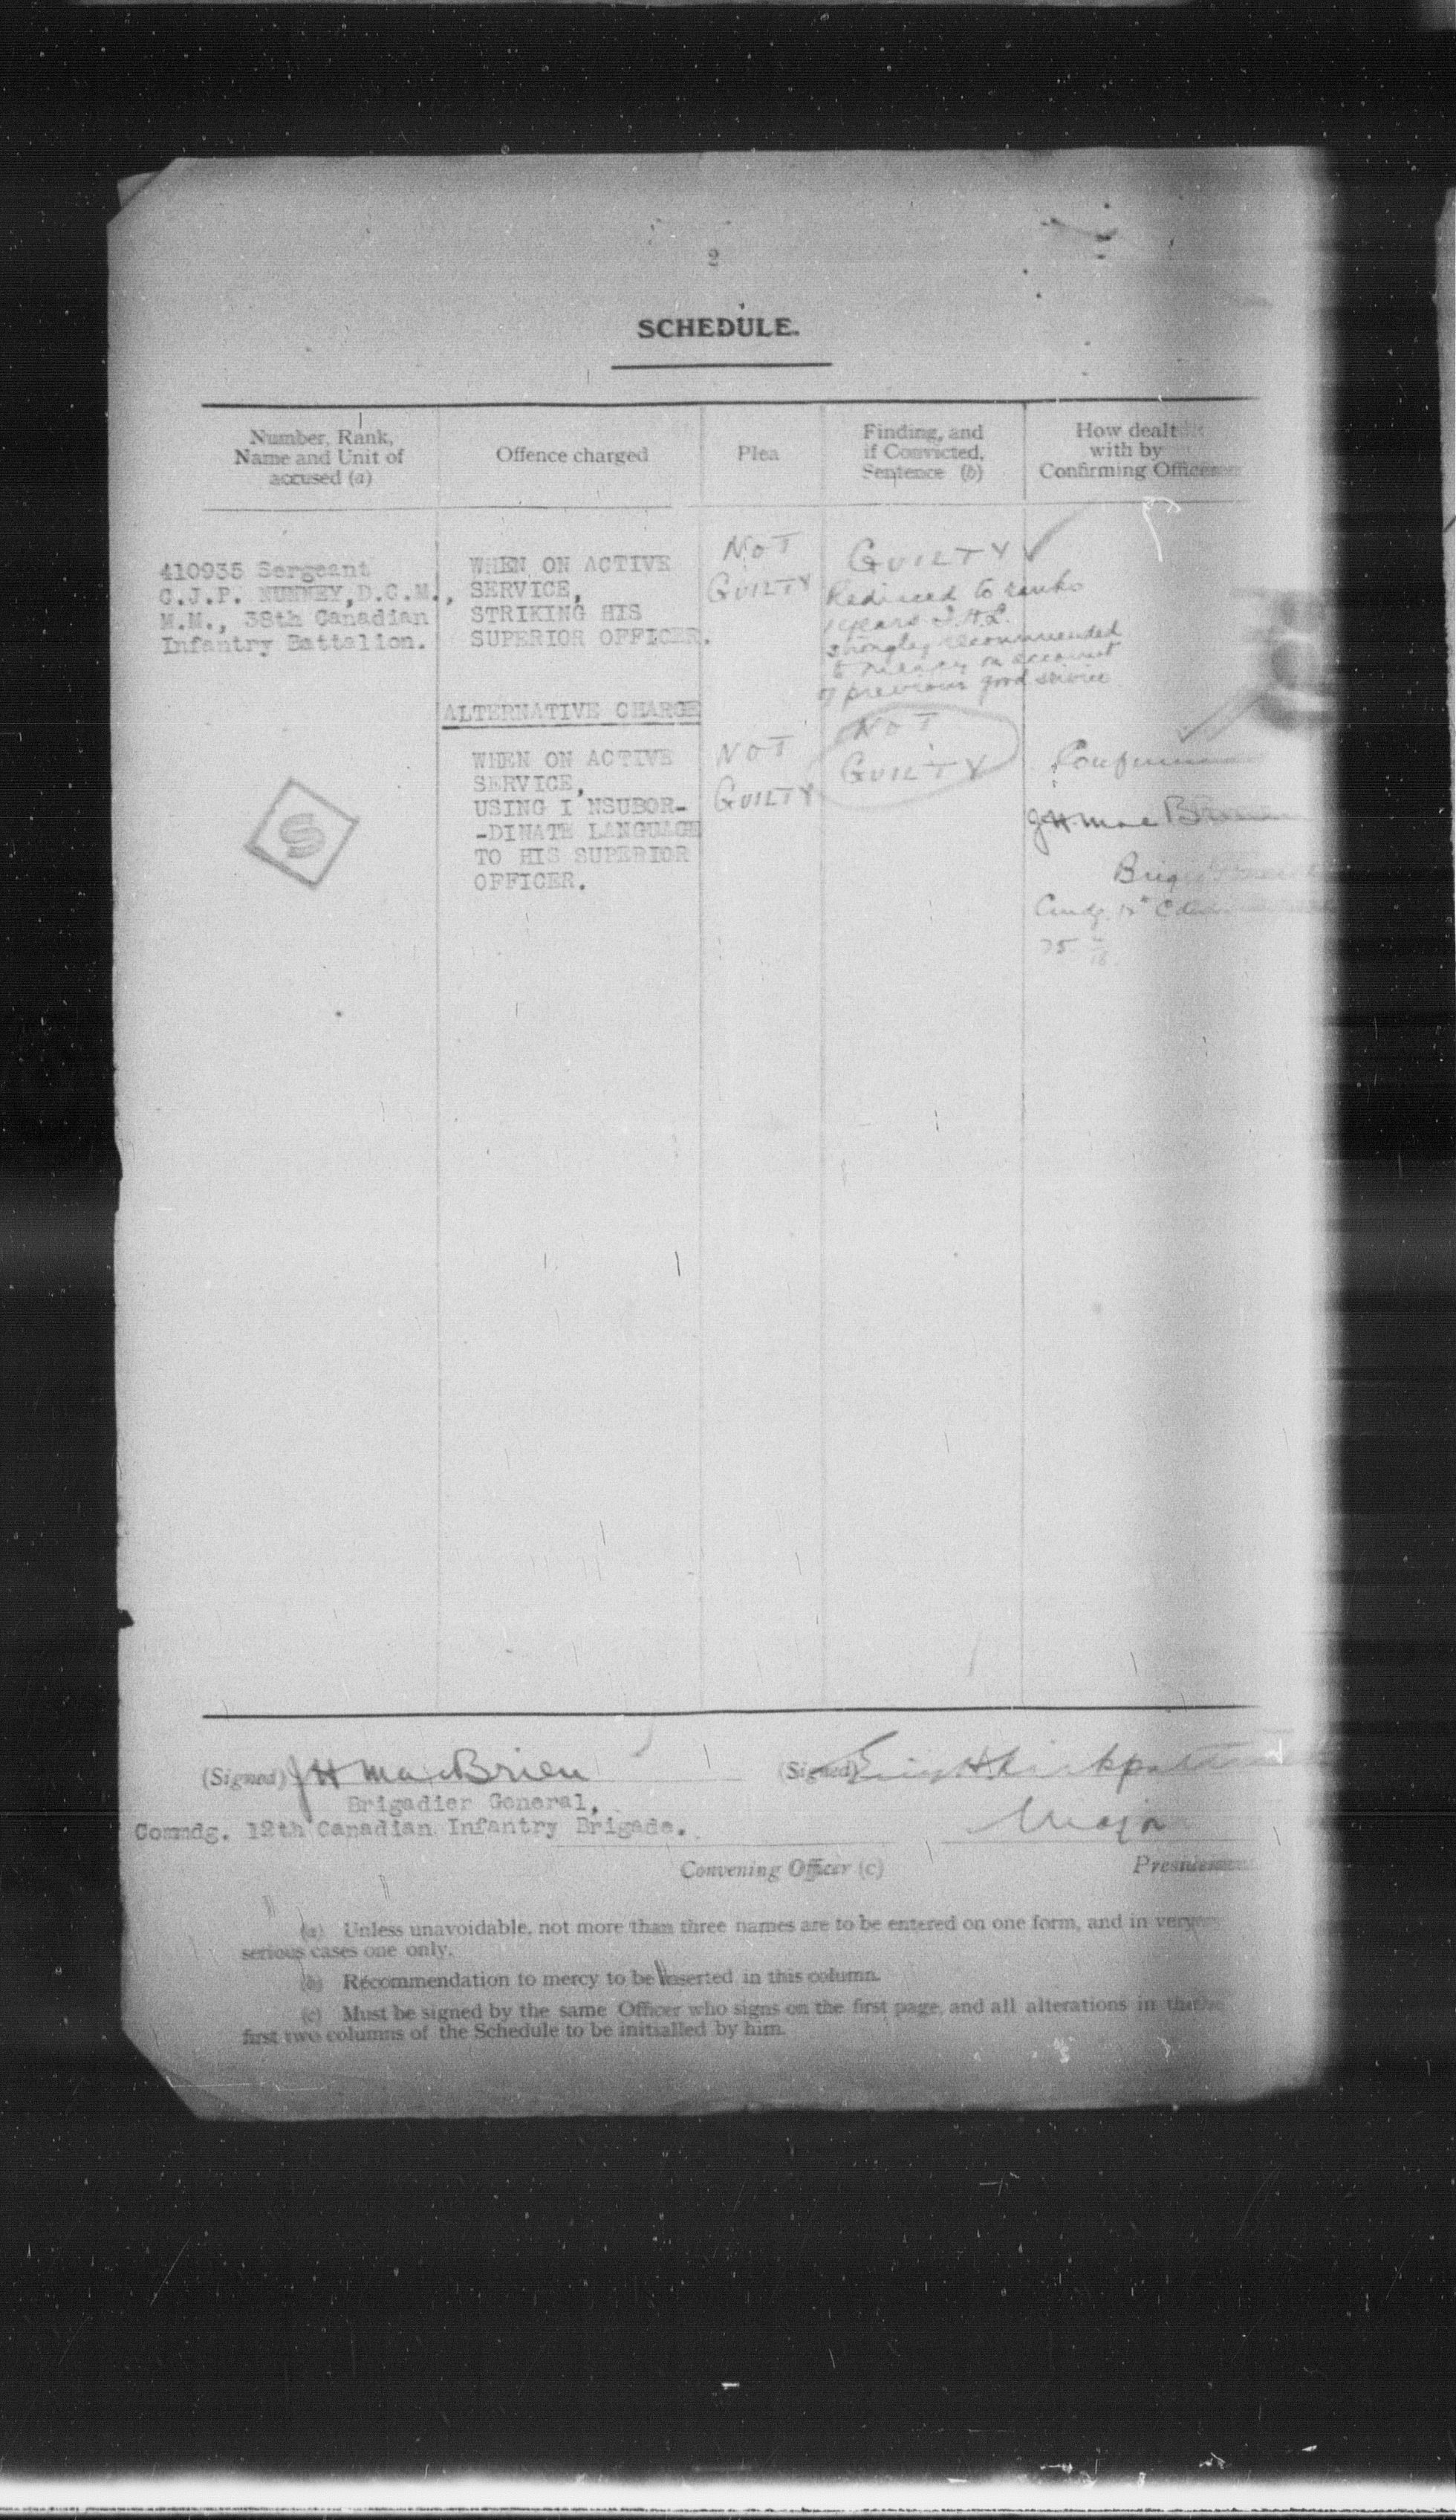 2
SCHEDULE.
Number, Rank,
Name and Unit of
accused (a)
Offence charged
Plea
Finding, and
if Convicted,
Sentence (b)
How dealt
with by
Confirming Officer
410935 Sergeant
C.J.P. NUNNEY, D.C.M.,
M.M., 38th Canadian
Infantry Battalion.
WHEN ON ACTIVE
SERVICE,
STRIKING HIS
SUPERIOR OFFICER.
NOT
GUILTY
GUILTY
Reduced to ranks
1 years I.H.L.
strongley recommended
to mercy on account
of previous good service
ALTERNATIVE CHARGE
WHEN ON ACTIVE
SERVICE,
USING I NSUBOR-
-DINATE LANGUAGE
TO HIS SUPERIOR
OFFICER.
NOT
GUILTY
NOT
GUILTY
J H Mac Brien
Brig
Cmdg. 12th
S
(Signed) J H MacBrien
Brigadier General,
Commdg. 12th Canadian Infantry Brigade.
Convening Officer (c)
(Signed)
Major
President
(a) Unless unavoidable, not more than three names are to be entered on one form, and in very
serious cases one only.
(b) Recommendation to mercy to be inserted in this column.
(c) Must be signed by the same Officer who signs on the first page, and all alterations in the
first two columns of the Schedule to be initialled by him.